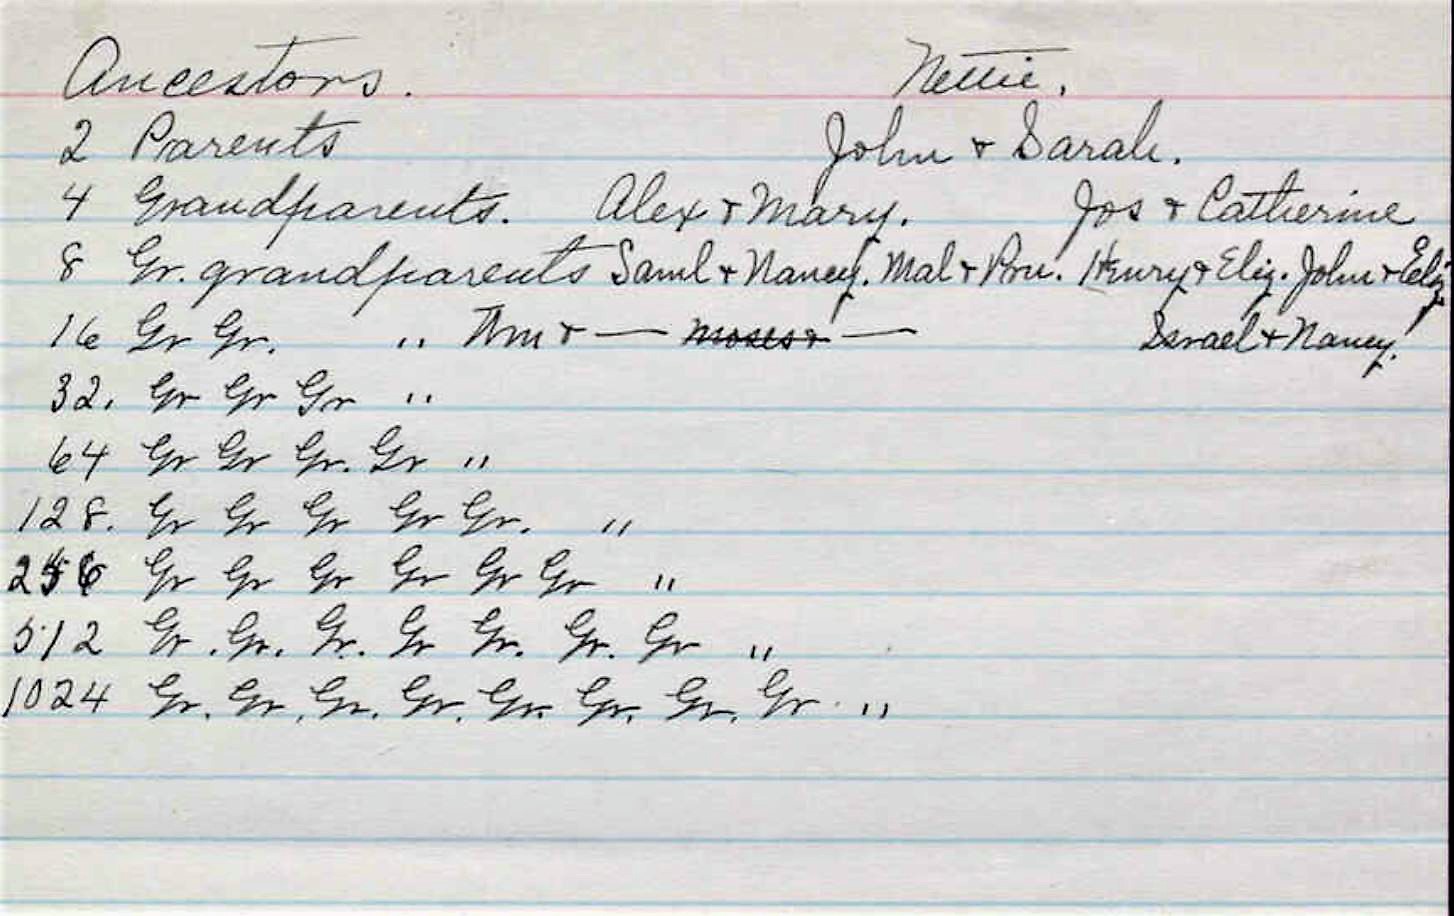 Ancestors. Nettie.
2 Parents John + Sarah.
4 Grandparents. Alex + Mary. Jos + Catherine
8 Gr. grandparents Saml + Nancy. Mal + Pru. Henry + Eliz. John + Eliz
16 Gr Gr. " + — Moses + — Israel + Nancy.
32. Gr Gr Gr "
64 Gr Gr Gr. Gr "
128. Gr Gr Gr Gr Gr. "
256 Gr Gr Gr Gr Gr Gr "
512 Gr. Gr. Gr. Gr Gr. Gr. Gr "
1024 Gr. Gr. Gr. Gr. Gr. Gr. Gr. Gr. "